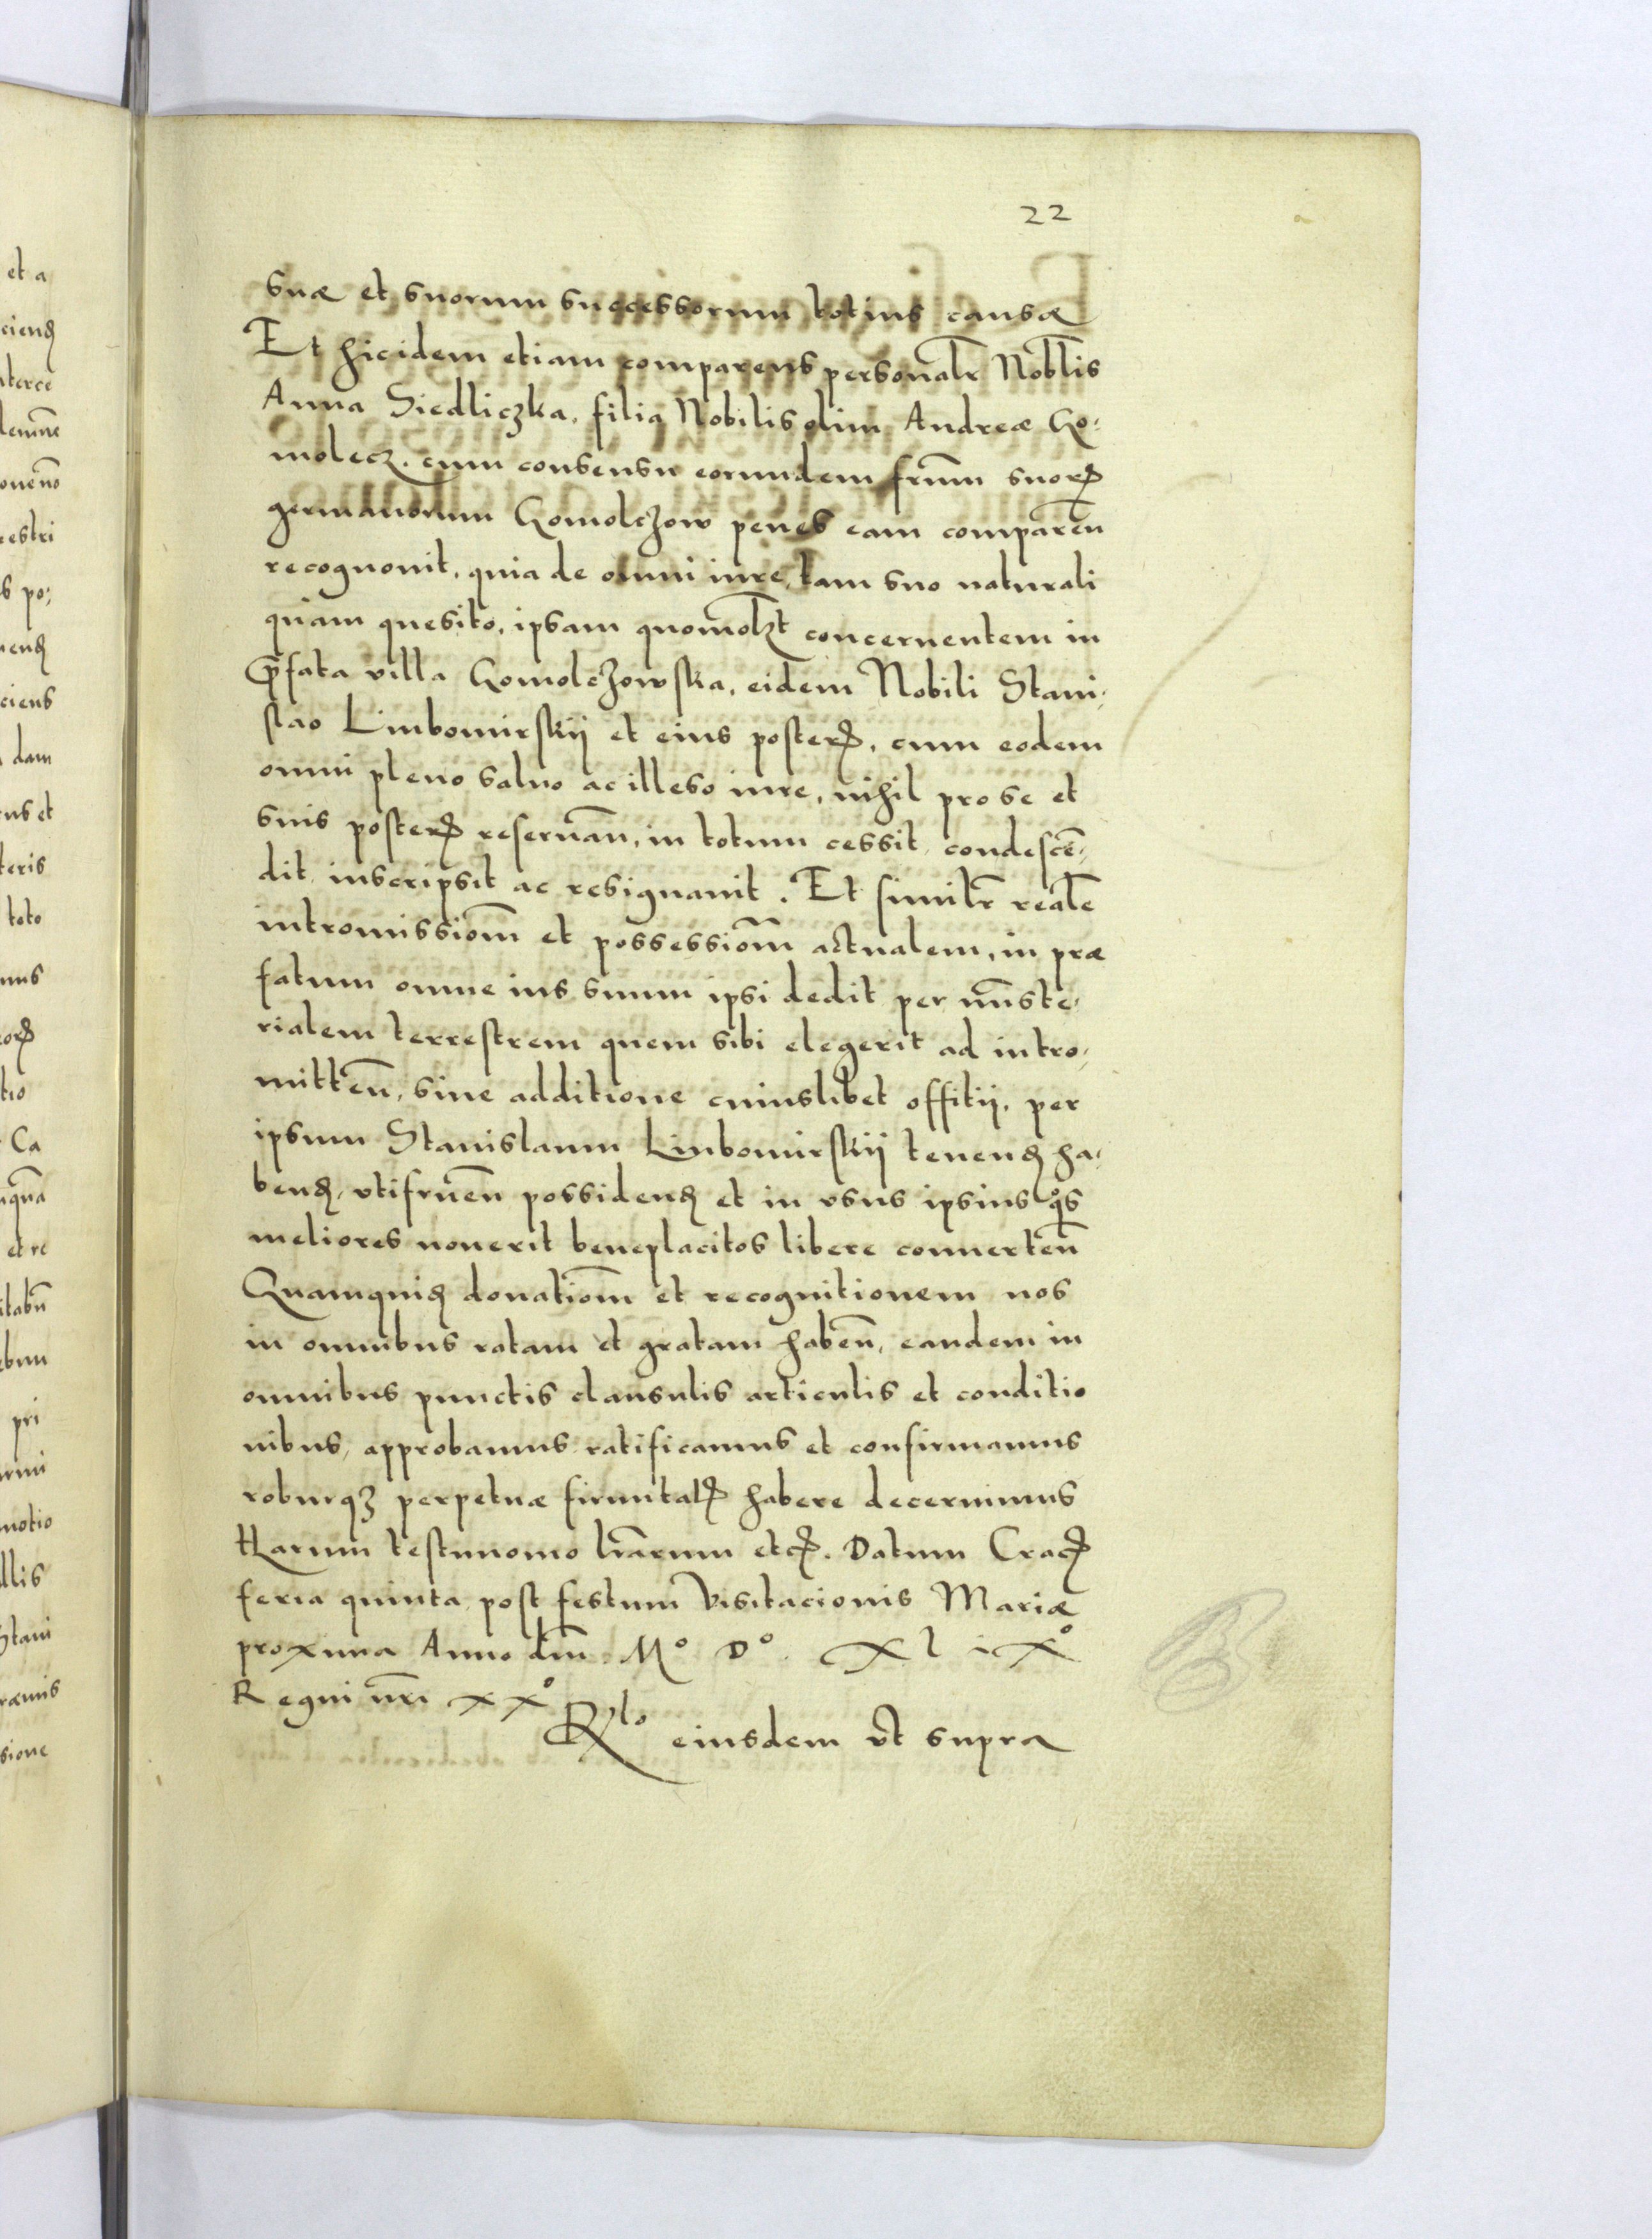 22
suæ et suorum successorum totius causæ
Et hicidem etiam comparens personalr̄ Nobl̄is
Anna Siedliczka, filia Nobilis olim Andreæ Go⸗
molecz. cum consensu eorundem fr̄um suorꝝ
germanorum Gomolczow penes eam comparen̄
recognouit, quia de omni iure, tam suo naturali
quàm quesito, ipsam quomol̄zt concernentem in
p̄fata villa Gomolczowska, eidem Nobili Stani⸗
slao Liubomirskij et eius posterꝭ, cum eodem
omni pleno saluo ac illeso iure, nihil pro se et
suis posterꝭ reseruan̄, in totum cessit condescē⸗
dit inscripsit ac resignauit. Et similr̄ realē
intromissiom̄ et possessiom̄ actualem, in præ
fatum omne ius suum ipsi dedit per mn̄iste⸗
rialem terrestrem quem sibi elegerit ad intro⸗
mitten̄, sine additione cuiuslibet offitij, per
ipsum Stanislaum Liubomirskij tenenꝺ ha⸗
benꝺ, vtifruen̄ possidenꝺ et in vsus ipsius q̊s
meliores nouerit beneplacitos libere conuerten̄
Quamquiꝺ donatiom̄ et recognitionem nos
in omnibus ratam et gratam haben̄, eandem in
omnibus punctis clausulis articulis et conditio
nibus, approbamus ratificamus et confirmamus
roburqꝫ perpetuæ firmitatꝭ habere decernimus
Harum testimonio lr̄arum etcꝭ. Datum Cracꝭ
feria quinta post festum Visitacionis Mariæ
proxima Anno dm̄ . Mº Dº . Xl iXº
Regni nr̄i xxº
Rlo eiusdem vt supra